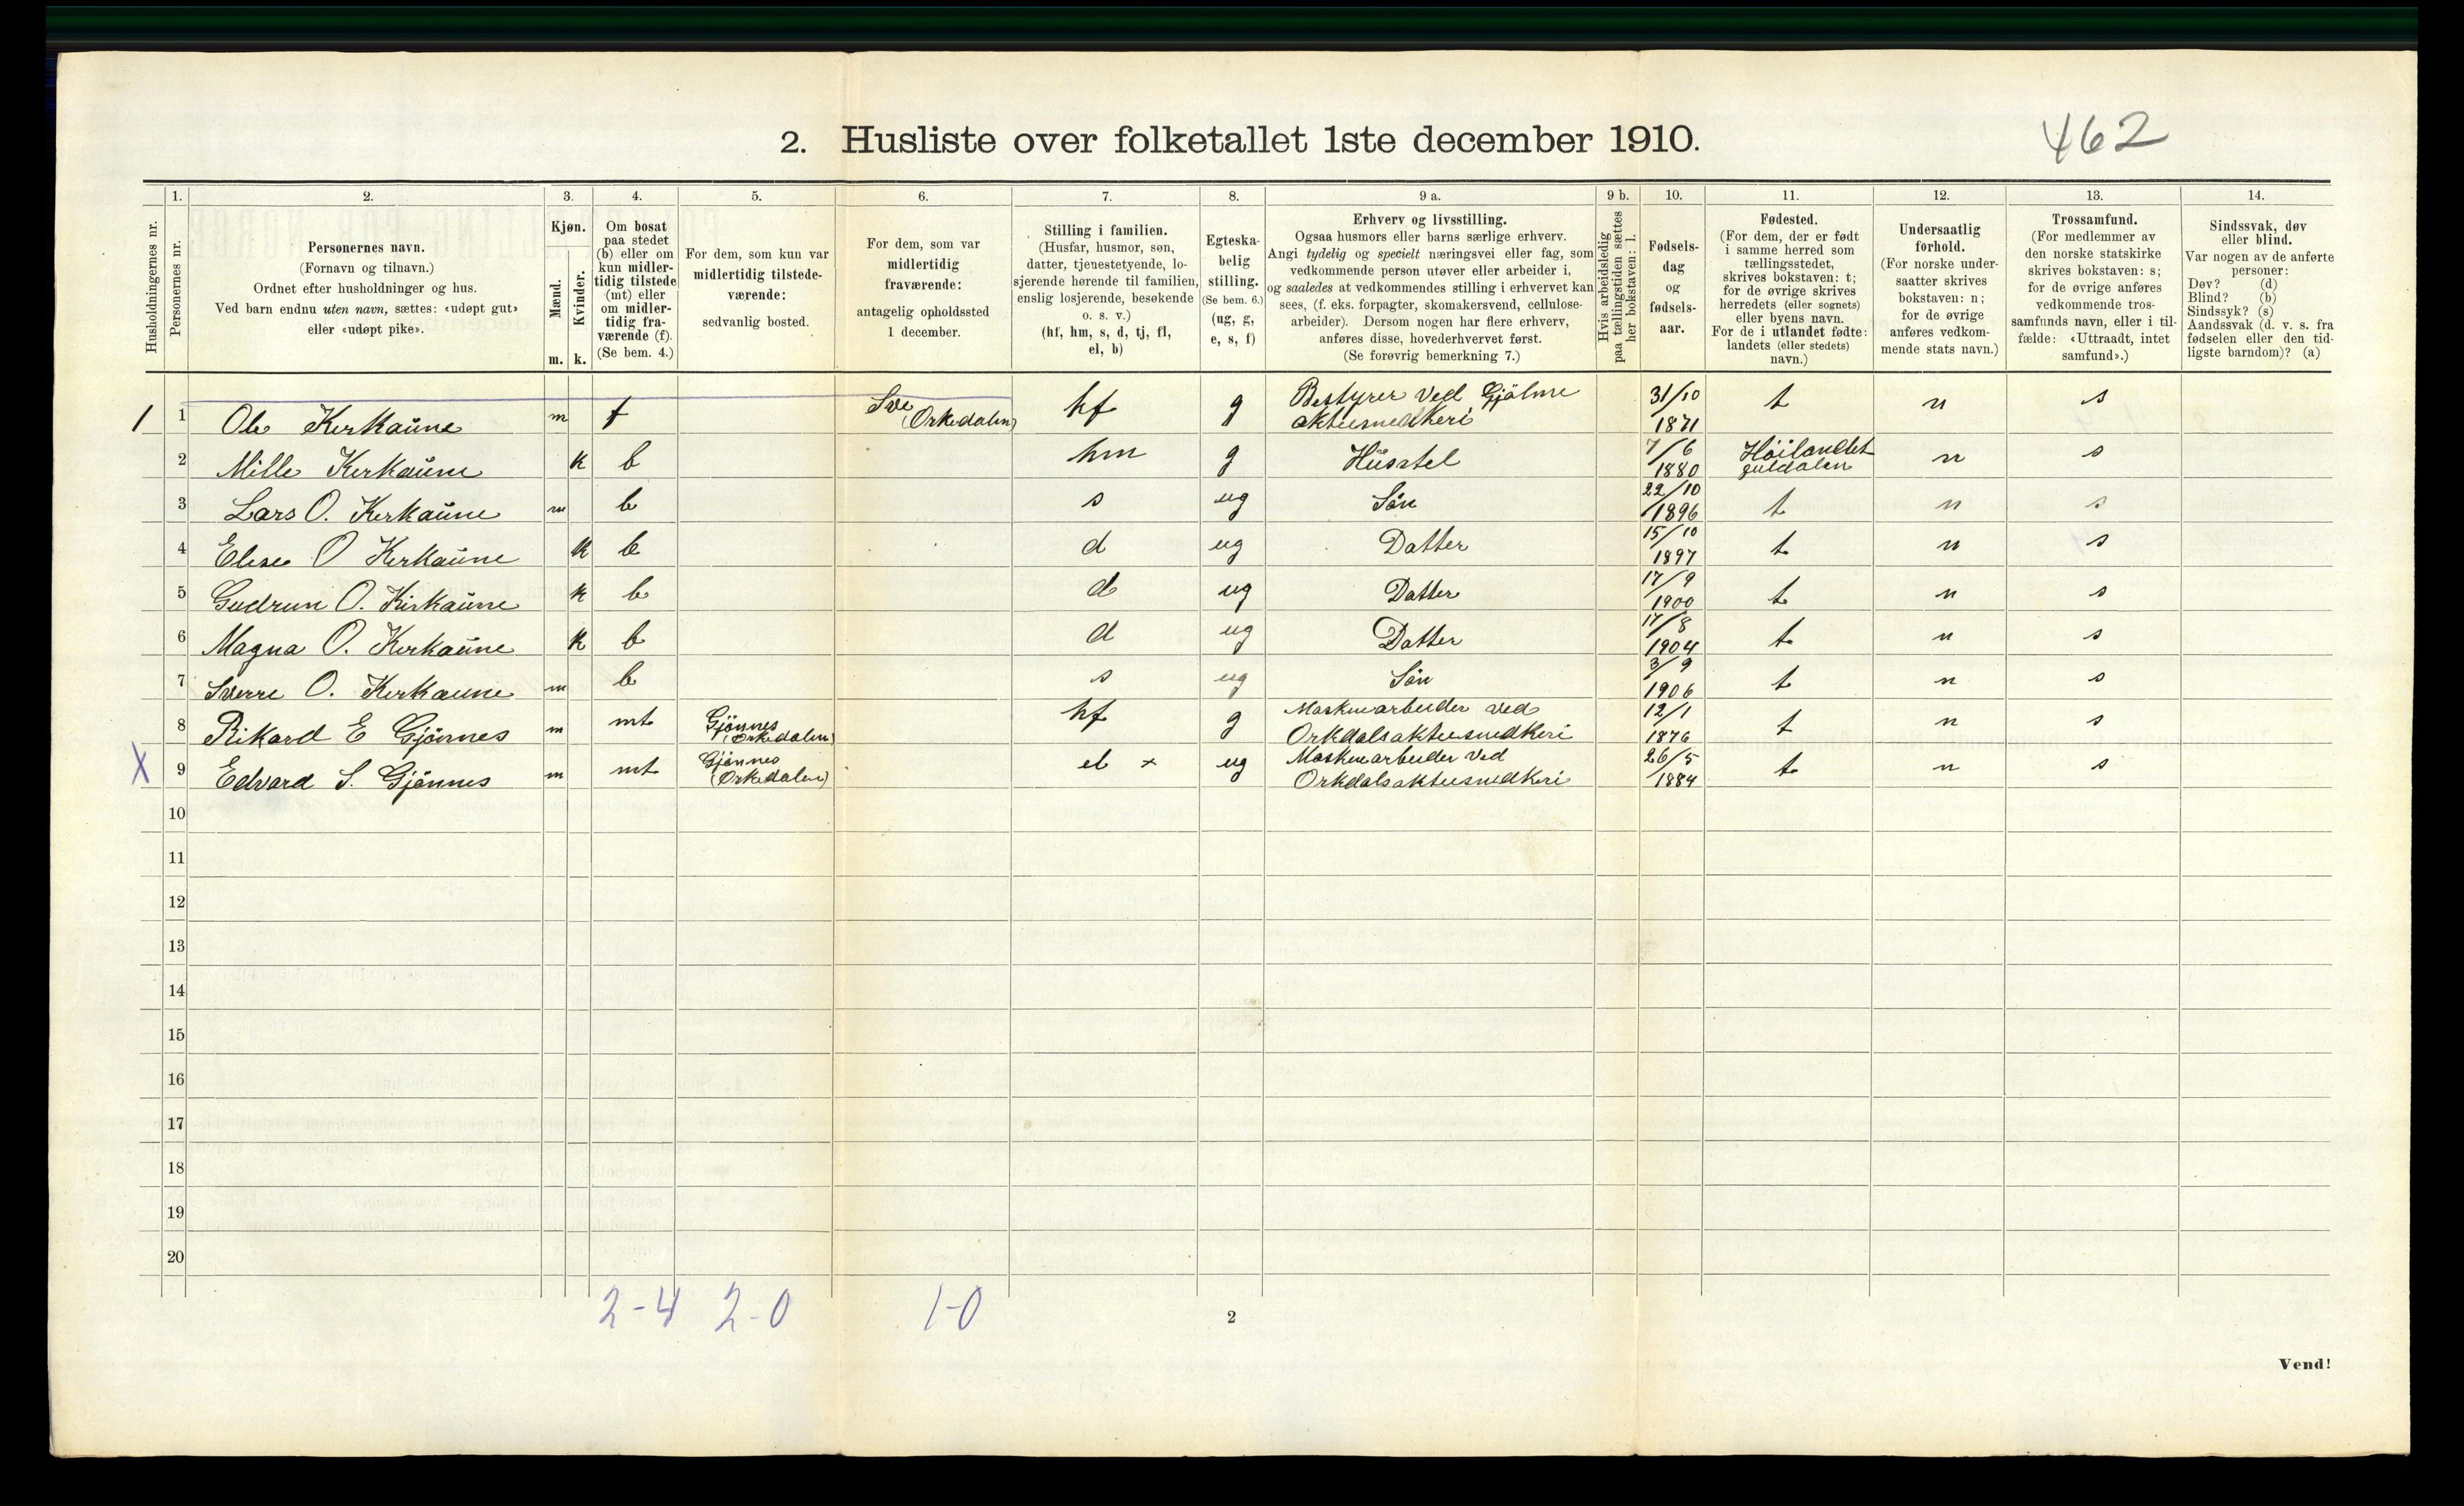 462
2. Husliste over folketallet 1ste december 1910.
Husholdningernes nr.
1.
Personernes nr.
2.
Personernes navn.
(Fornavn og tilnavn.)
Ordnet efter husholdninger og hus.
Ved barn endnu uten navn, sættes: «udøpt gut»
eller «udøpt pike».
3.
Kjøn.
Mænd.
Kvinder.
m. k.
4.
Om bosat
paa stedet
(b) eller om
kun midler-
tidig tilstede
(mt) eller
om midler-
tidig fra-
værende (f).
(Se bem. 4.)
5.
For dem, som kun var
midlertidig tilstede-
værende:
sedvanlig bosted.
6.
For dem, som var
midlertidig
fraværende:
antagelig opholdssted
1 december.
7.
Stilling i familien.
(Husfar, husmor, søn,
datter, tjenestetyende, lo-
sjerende hørende til familien,
enslig losjerende, besøkende
o. s. v.)
(hf, hm, s, d, tj, fl,
el, b)
8.
Egteska-
belig
stilling.
(Se bem. 6.)
(ug, g,
e, s, f)
9 a.
Erhverv og livsstilling.
Ogsaa husmors eller barns særlige erhverv.
Angi tydelig og specielt næringsvei eller fag, som
vedkommende person utøver eller arbeider i,
og saaledes at vedkommendes stilling i erhvervet kan
sees, (f. eks. forpagter, skomakersvend, cellulose-
arbeider). Dersom nogen har flere erhverv,
anføres disse, hovederhvervet først.
(Se forøvrig bemerkning 7.)
9 b.
Hvis arbeidsledig
paa tællingstiden sættes
her bokstaven: l.
10.
Fødsels-
dag
og
fødsels-
aar.
11.
Fødested.
(For dem, der er født
i samme herred som
tællingsstedet,
skrives bokstaven: t;
for de øvrige skrives
herredets (eller sognets)
eller byens navn.
For de i utlandet fødte:
landets (eller stedets)
navn.)
12.
Undersaatlig
forhold.
(For norske under-
saatter skrives
bokstaven: n;
for de øvrige
anføres vedkom-
mende stats navn.)
13.
Trossamfund.
(For medlemmer av
den norske statskirke
skrives bokstaven: s;
for de øvrige anføres
vedkommende tros-
samfunds navn, eller i til-
fælde: «Uttraadt, intet
samfund».)
14.
Sindssvak, døv
eller blind.
Var nogen av de anførte
personer:
Døv? (d)
Blind? (b)
Sindssyk? (s)
Aandssvak (d. v. s. fra
fødselen eller den tid-
ligste barndom)? (a)
1 1 Ole Kerkaune m f Sve (Orkedalen) hf g Bestyrer ved Gjølme aktiesnedkeri 31/10 1871 t n s
2 Mille Kerkaune k b hm g Husstel 7/6 1880 Høilandet guldalen n s
3 Lars O. Kerkaune m b s ug Søn 22/10 1896 t n s
4 Elise O Kerkaune k b d ug Datter 15/10 1897 t n s
5 Gudrun O. Kirkaune k b d ug Datter 17/9 1900 t n s
6 Magna O. Kerkaune k b d ug Datter 17/8 1904 t n s
7 Sverre O. Kerkaune m b s ug Søn 3/9 1906 t n s
8 Rikard E Gjønnes m mt Gjønnes (Orkedalen) hf g Maskinarbeider ved Orkdalsaktiesnedkeri 12/1 1876 t n s
X 9 Edvard S. Gjønnes m mt Gjønnes (Orkedalen) el x ug Maskinarbeider ved Orkdalsaktiesnedkeri 26/5 1884 t n s
10
11
12
13
14
15
16
17
18
19
20
2-4 2-0 1-0
2
Vend!